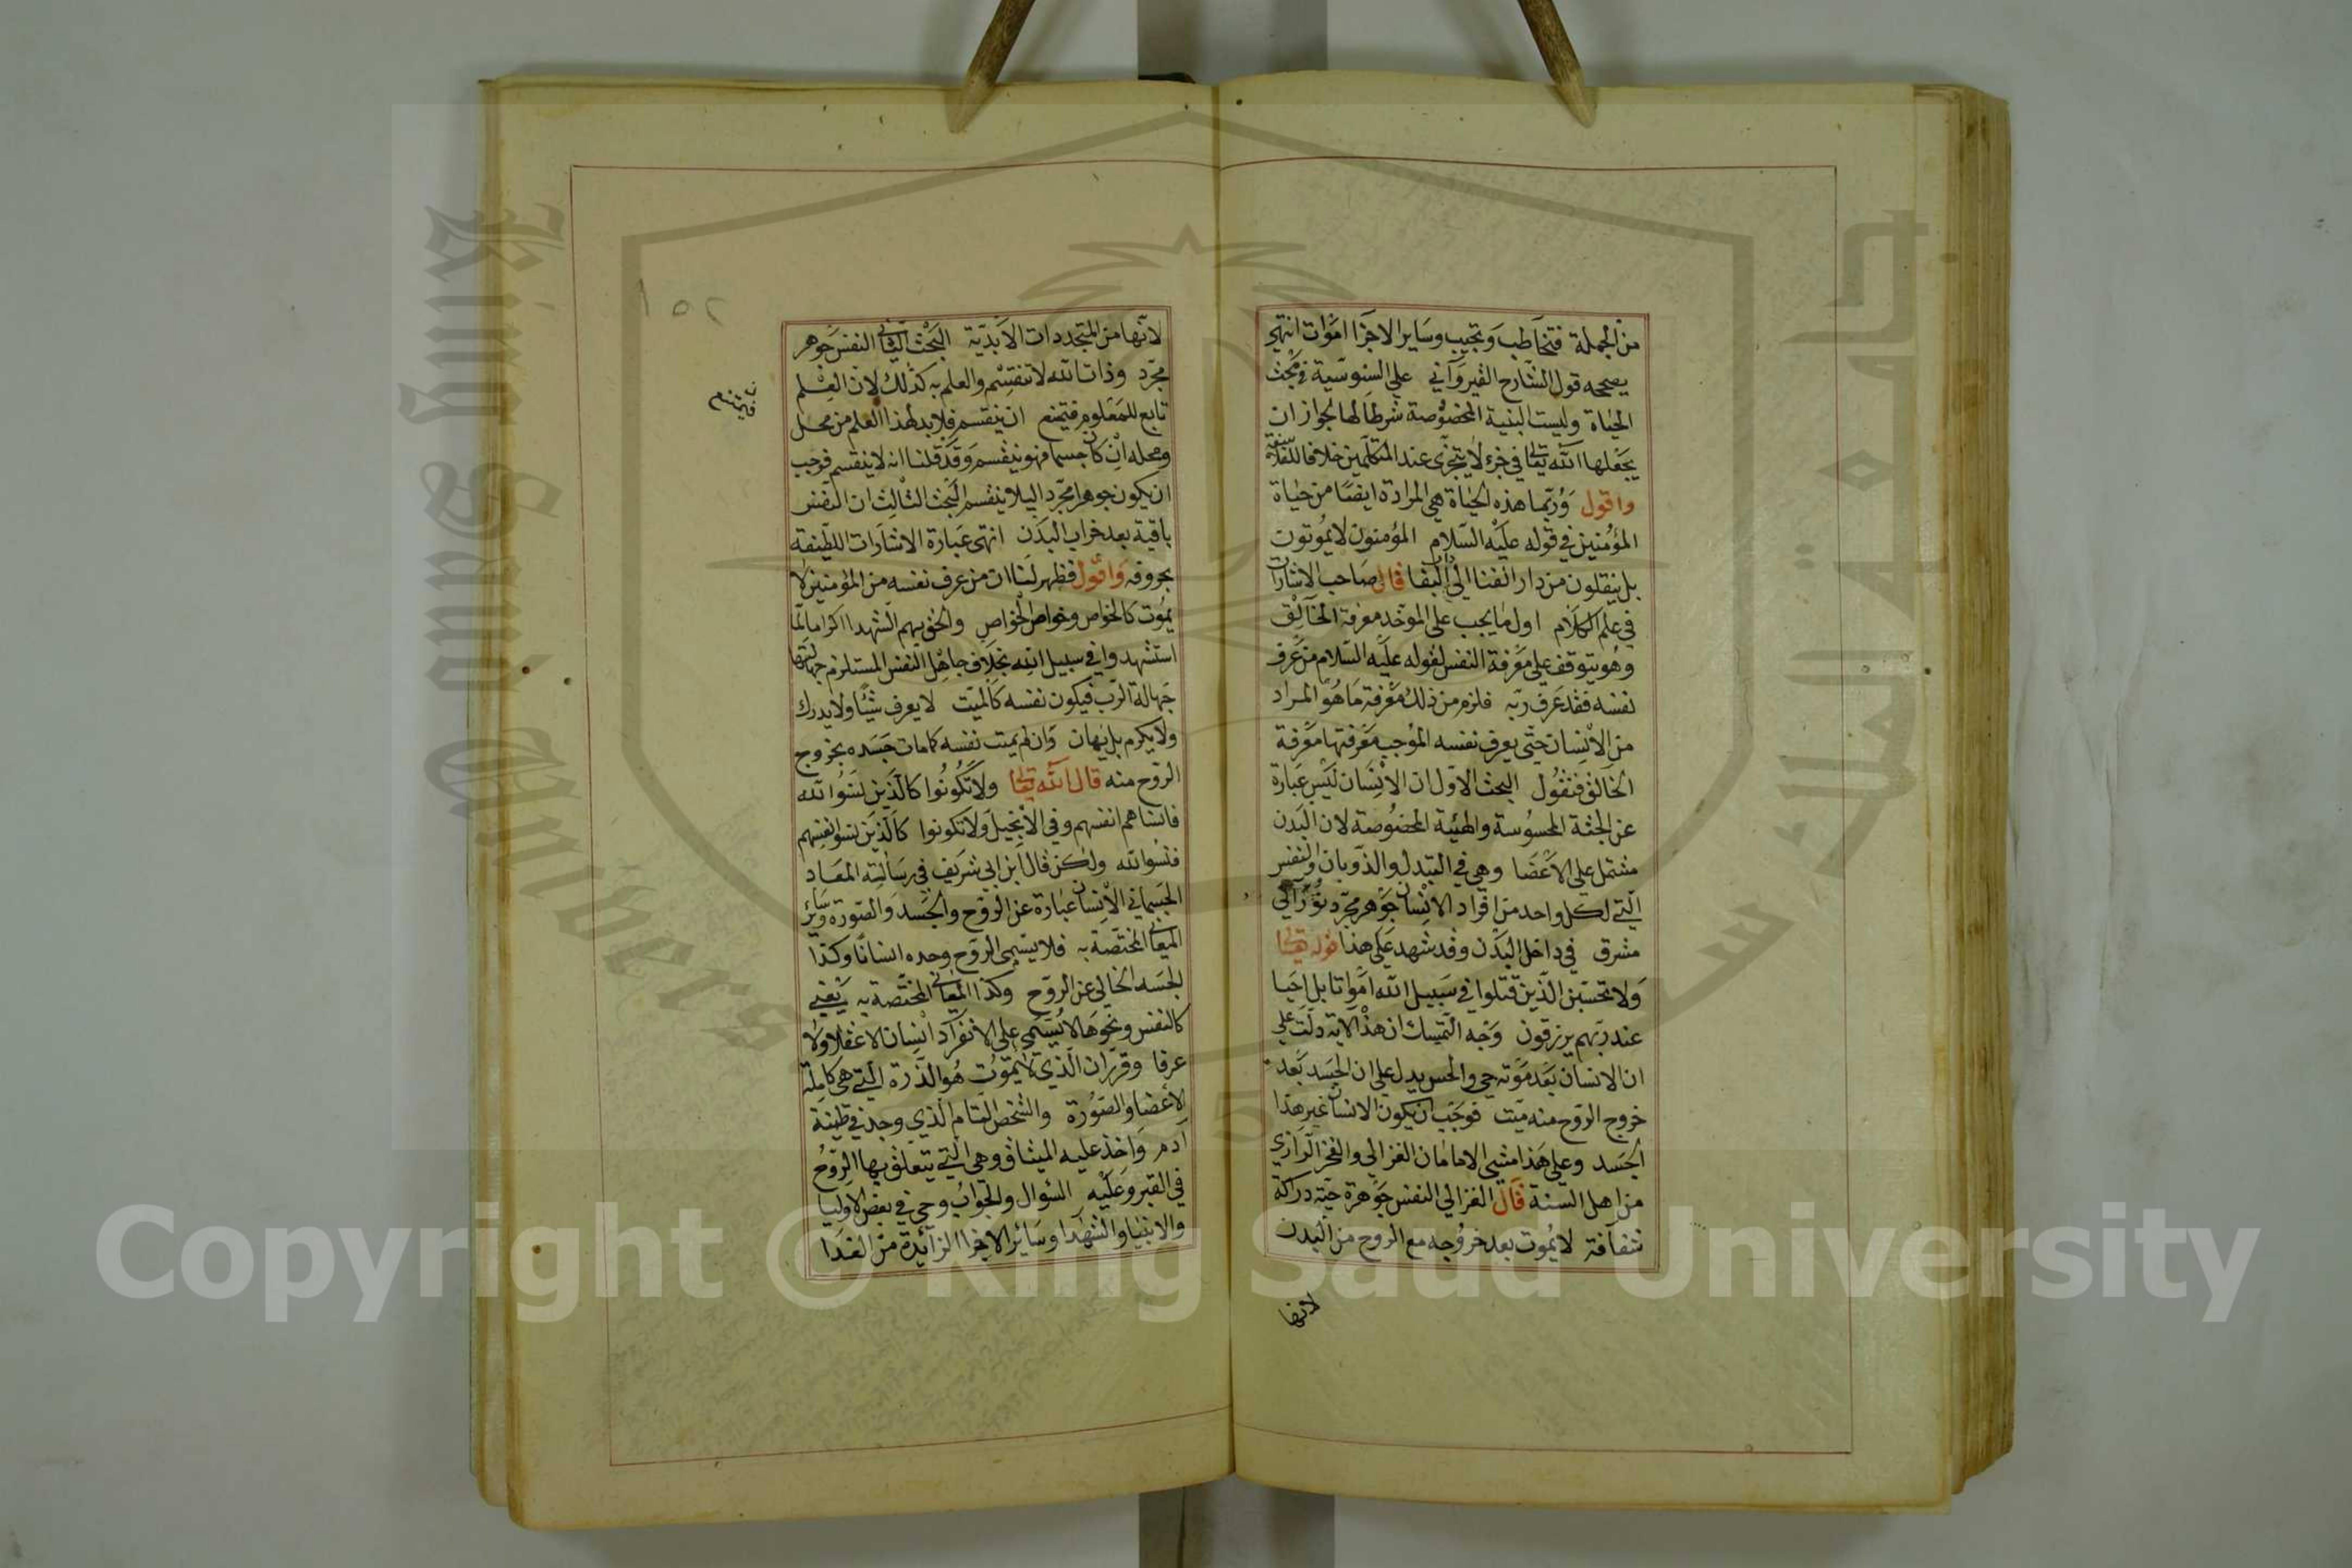 من الجملة فتخاطب وتجيب وساير الاجزا اموات انتهى
يصححه قول الشارح القيرواني على السنوسية في مبحث
الحياة وليست البنية المخصوصة شرطا لها لجواز ان
يجعلها الله تعالى في جزء لا يتجزى عند المتكلمين خلافا للفلاسفة
واقول وربما هذه الحياة هي المرادة ايضا من حياة
المؤمنين في قوله عليه السلام المؤمنون لا يموتون
بل ينقلون من دار الفنا الى دار البقا قال صاحب الاشارات
في علم الكلام اول ما يجب على الموحد معرفة الخالق
وهو يتوقف على معرفة النفس لقوله عليه السلام من عرف
نفسه فقد عرف ربه فلزم من ذلك معرفة ما هو المراد
من الانسان حتى يعرف نفسه الموجب معرفتها معرفة
الخالق فنقول البحث الاول ان الانسان ليس عبارة
عن الجثة المحسوسة والهيئة المخصوصة لان البدن
مشتمل على الاعضا وهي في التبدل والذوبان والنفس
التي لكل واحد من افراد الانسان جوهر مجرد نوراني
مشرق في داخل البدن وقد شهد على هذا قوله تعالى
ولا تحسبن الذين قتلوا في سبيل الله امواتا بل احيا
عند ربهم يرزقون وجه التمسك ان هذه الاية دلت على
ان الانسان بعد موته حي والحس يدل على ان الجسد بعد
خروج الروح منه ميت فوجب ان يكون الانسان غير هذا
الجسد وعلى هذا مشى الامامان الغزالي والفخر الرازي
من اهل السنة قال الغزالي النفس جوهرة حية دراكة
شفافة لا يموت بعد خروجه مع الروح من البدن
لانها
١٥٢
لانها من المتجددات الابدية البحث الثاني النفس جوهر
مجرد وذات الله لا تنقسم والعلم به كذلك لان العلم
تابع للمعلوم فيمتنع ان ينقسم فلا بد لهذا العلم من محل
ومحله ان كان جسما فهو ينقسم وقد قلنا انه لا ينقسم فوجب
ان يكون جوهرا مجردا ليلا ينقسم البحث الثالث ان النفس
باقية بعد خراب البدن انتهى عبارة الاشارات اللطيفة
بحروفه واقول فظهر لنا ان من عرف نفسه من المؤمنين لا
يموت كالخواص وخواص الخواص والحق بهم الشهدا اكراما لما
استشهدوا في سبيل الله بخلاف جاهل النفس المستلزم جهالتها
جهالة الرب فيكون نفسه كالميت لا يعرف شيئا ولا يدرك
ولا يكرم بل يهان وان لم يمت نفسه كما مات جسده بخروج
الروح منه قال الله تعالى ولا تكونوا كالذين نسوا الله
فانساهم انفسهم وفي الانجيل ولا تكونوا كالذين نسوا انفسهم
فنسوا الله ولكن قال ابن ابي شريف في رسالته المعاد
الجسماني الانسان عبارة عن الروح والجسد والصورة وسائر
المعاني المختصة به فلا يسمى الروح وحده انسانا وكذا
الجسد الخالي عن الروح وكذا المعاني المختصة به يعني
كالنفس ونحوها لا يسمى على الانفراد انسان لا عقلا ولا
عرفا وقرر ان الذي لا يموت هو الذرة التي هي كاملة
الاعضا والصورة والشخص التام الذي وجد في طينة
آدم واخذ عليه الميثاق وهي التي يتعلق بها الروح
في القبر وعليه السؤال والجواب وحي في بعض الاوليا
والانبيا والشهدا وسائر الاجزا الزائدة من الغدا
فيمتنع
Copyright © King Saud University